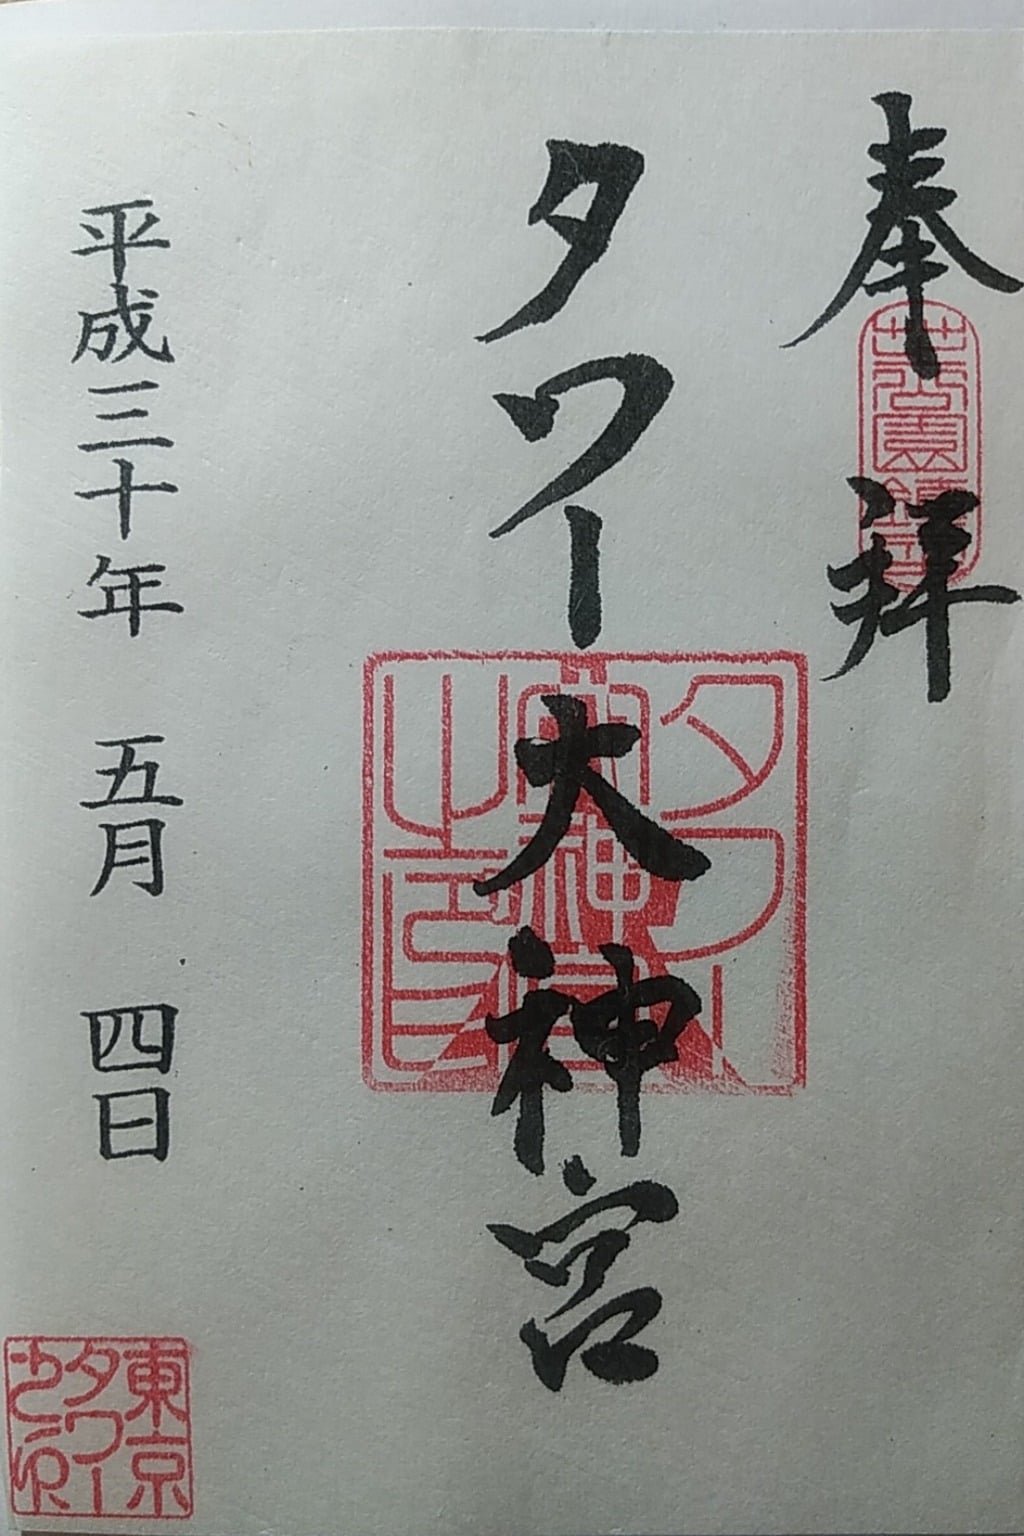 奉拝
タワー大神宮
タワー大神宮之印
平成三十年 五月 四日
東京タワー